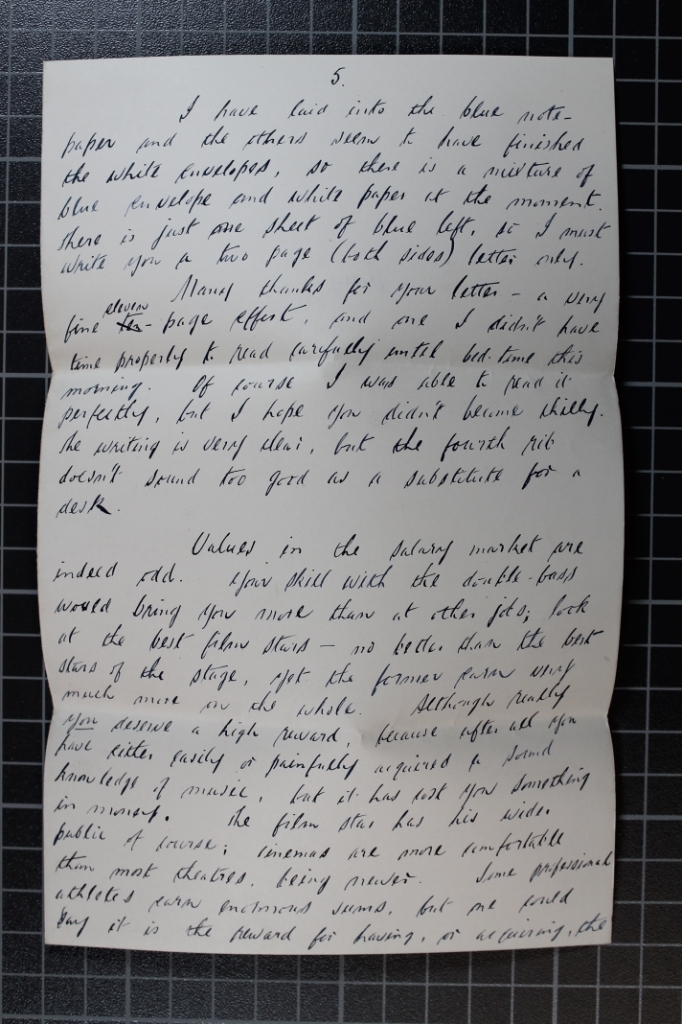 5.
I have laid into the blue note-
paper and the others seem to have finished
the white envelopes, so there is a mixture of
blue envelope and white paper at the moment.
There is just one sheet of blue left, so I must
write you a two page (both sides) letter only.
Many thanks for your letter - a very
eleven
fine ten- page effort, and one I didn't have
time properly to read carefully until bed-time this
morning. Of course I was able to read it
perfectly, but I hope you didn't become chilly.
The writing is very clear, but the fourth rib
doesn't sound too good as a substitute for a
desk.
Values in the salary market are
indeed odd. Your skill with the double-bass
would bring you more than at other jobs; look
at the best film stars - no better than the best
stars of the stage, yet the former earn very
much more on the whole. Although really
you deserve a high reward, because after all you
have either easily or painfully acquired a sound
knowledge of music, but it has cost you something
in money. The film star has his wider
public of course; cinemas are more comfortable
than most theatres, being newer. Some professional
athletes earn enormous sums, but one could
say it is the reward for having, or acquiring, the